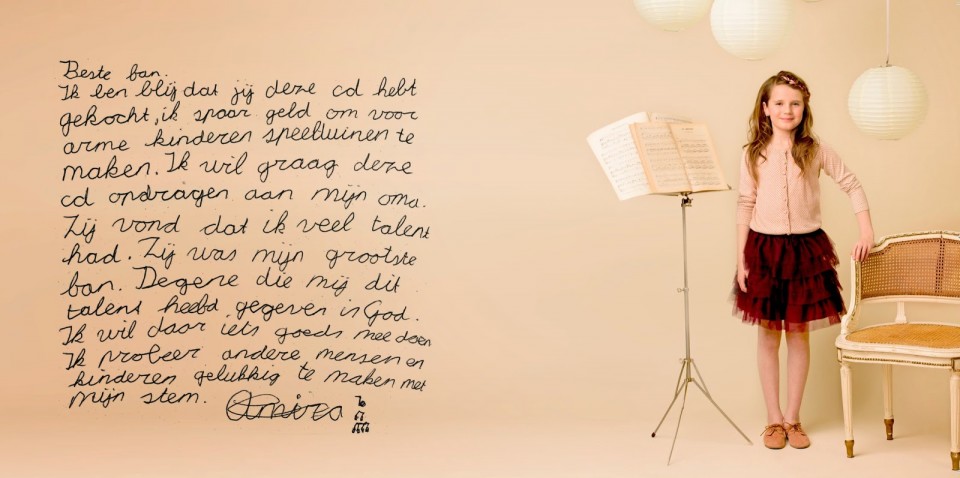 Beste ban.
Ik ben blij dat jij deze cd hebt
gekocht, ik spaar geld om voor
arme kinderen speeltuinen te
maken. Ik wil graag deze
cd opdragen aan mijn oma.
Zij vond dat ik veel talent
had. Zij was mijn grootste
ban. Degene die mij dit
talent heebd gegeven is God.
Ik wil daar iets goeds mee doen
Ik probeer andere mensen en
kinderen gelukkig te maken met
mijn stem. Amira